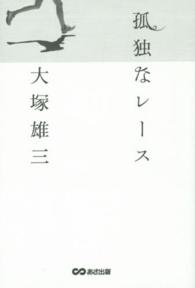 孤独なレース
大塚雄三
あさ出版